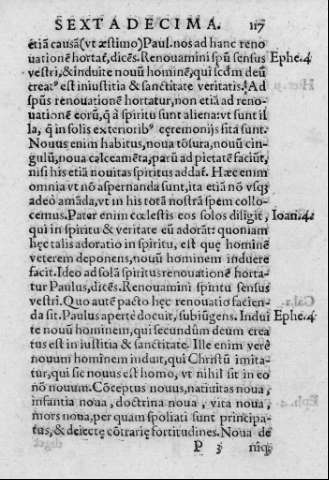 SEXTA DECIMA. 117
etiã causã (vt æstimo) Paul. nos ad hanc reno
uationẽ hortat̃, dicẽs. Renouamini spũ sensus Ephe.4
vestri, & induite nouũ hominẽ, qui scdm deũ
creatꝰ est in iustitia & sanctitate veritatis. Ad
spũs renouationẽ hortatur, non etiã ad reno-
uationẽ eorũ, q̃ à spiritu sunt aliena: vt sunt il
la, q̃ in solis exterioribꝰ cęremonijs sita sunt.
Nouus enim habitus, noua tõsura, nouũ cin-
gulũ, noua calceamẽta, parũ ad pietatẽ faciũt,
nisi his etiã nouitas spiritus addat̃. Hæc enim
omnia vt nõ aspernanda sunt, ita etiã nõ vsq;
adeò amãda, vt in his totã nostrã spem collo-
cemus. Pater enim cœlestis eos solos diligit, Ioan.4.
qui in spiritu & veritate eũ adorãt: quoniam
hęc talis adoratio in spiritu, est quę hominẽ
veterem deponens, nouũ hominem induere
facit. Ideo ad solã spiritus renouationẽ horta-
tur Paulus, dicẽs. Renouamini spiritu sensus
vestri. Quo autẽ pacto hęc renouatio facien-
da sit. Paulus apertè docuit, subiũgens. Indui Ephe.4
te nouũ hominem, qui secundũm deum crea
tus est in iustitia & sanctitate. Ille enim verè
nouum hominem induit, qui Christũ imita-
tur, qui sic nouus est homo, vt nihil sit in eo
nõ nouum. Cõceptus nouus, natiuitas noua,
infantia noua, doctrina noua, vita noua,
mors noua, per quam spoliati sunt principa-
tus, & deiectę cõtrarię fortitudines. Noua de
P 3 niq;